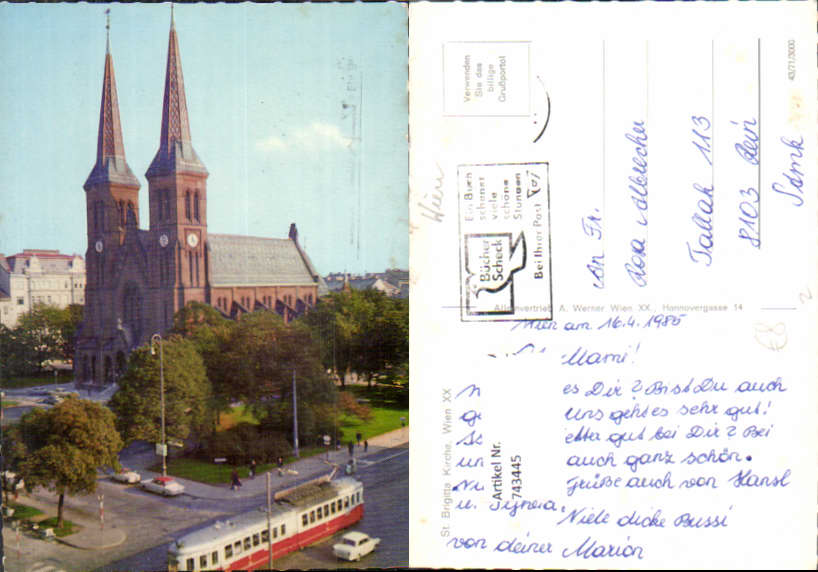 Verwenden
Sie das
billige
Grußportol
43/71/3000
Wien
Ein Buch
schenkt
viele
schöne
Stunden
Bücher
Scheck
Bei Ihrer Post
An Fr.
Rosa Albrecher
Tallak 113
8103 Rein
Stmk
Alleinvertrieb A. Werner Wien XX., Hannovergasse 14
St. Brigitta Kirche, Wien XX
Wien am 16.4.1985
Mami!
es Dir? Bist Du auch
Uns geht es sehr gut!
gut bei Dir? Bei
un auch ganz schön.
Grüße auch von Hansl
u.
Viele dicke Bussi
von deiner Marion
Artikel Nr.
743445